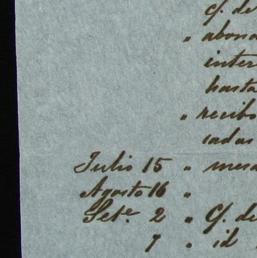 c/. de
" abona
inter
hasta
" recibo
sadas
Julio 15 " mesa
Agosto 16 "
Set.e 2 " c/. de
7 " id